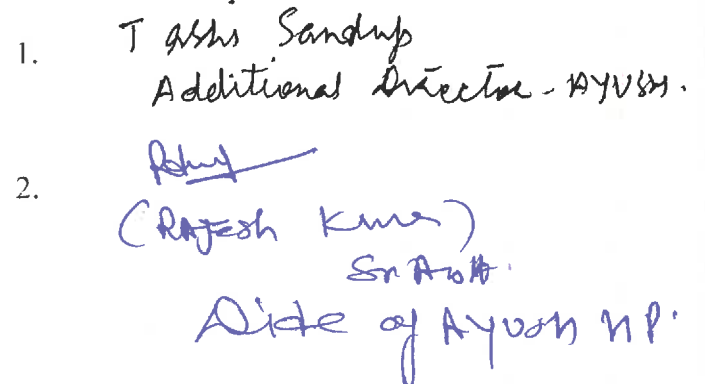 1. Tashi Sandup
Additional Director - AYUSH.
2.
(RAJESH Kumar)
Sr.
of AYUSH HP.